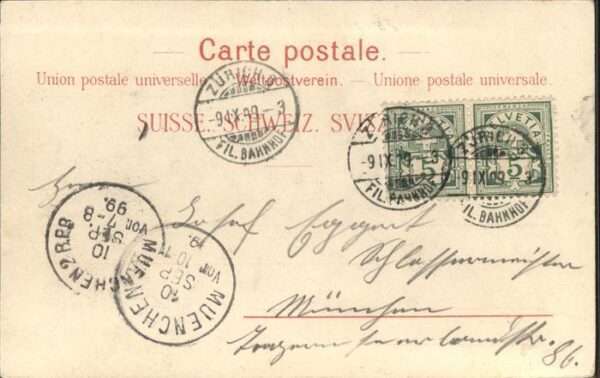 Carte postale.
Union postale universelle. — Weltpostverein. — Unione postale universale.
SUISSE. SCHWEIZ. SVIZZERA.
ZÜRICH
-9.IX.99.-3
FIL. BAHNHOF
ZÜRICH
-9.IX.99.-3
FIL. BAHNHOF
ZÜRICH
-9.IX.99.-3
FIL. BAHNHOF
HELVETIA
5
5
Herrn
Josef Eggert
Schlossermeister
München
86.
MUENCHEN 2 B.P.B
10
SEP.
Vor. 7-8
99.
MUENCHEN
10
SEP
Vor 10-11